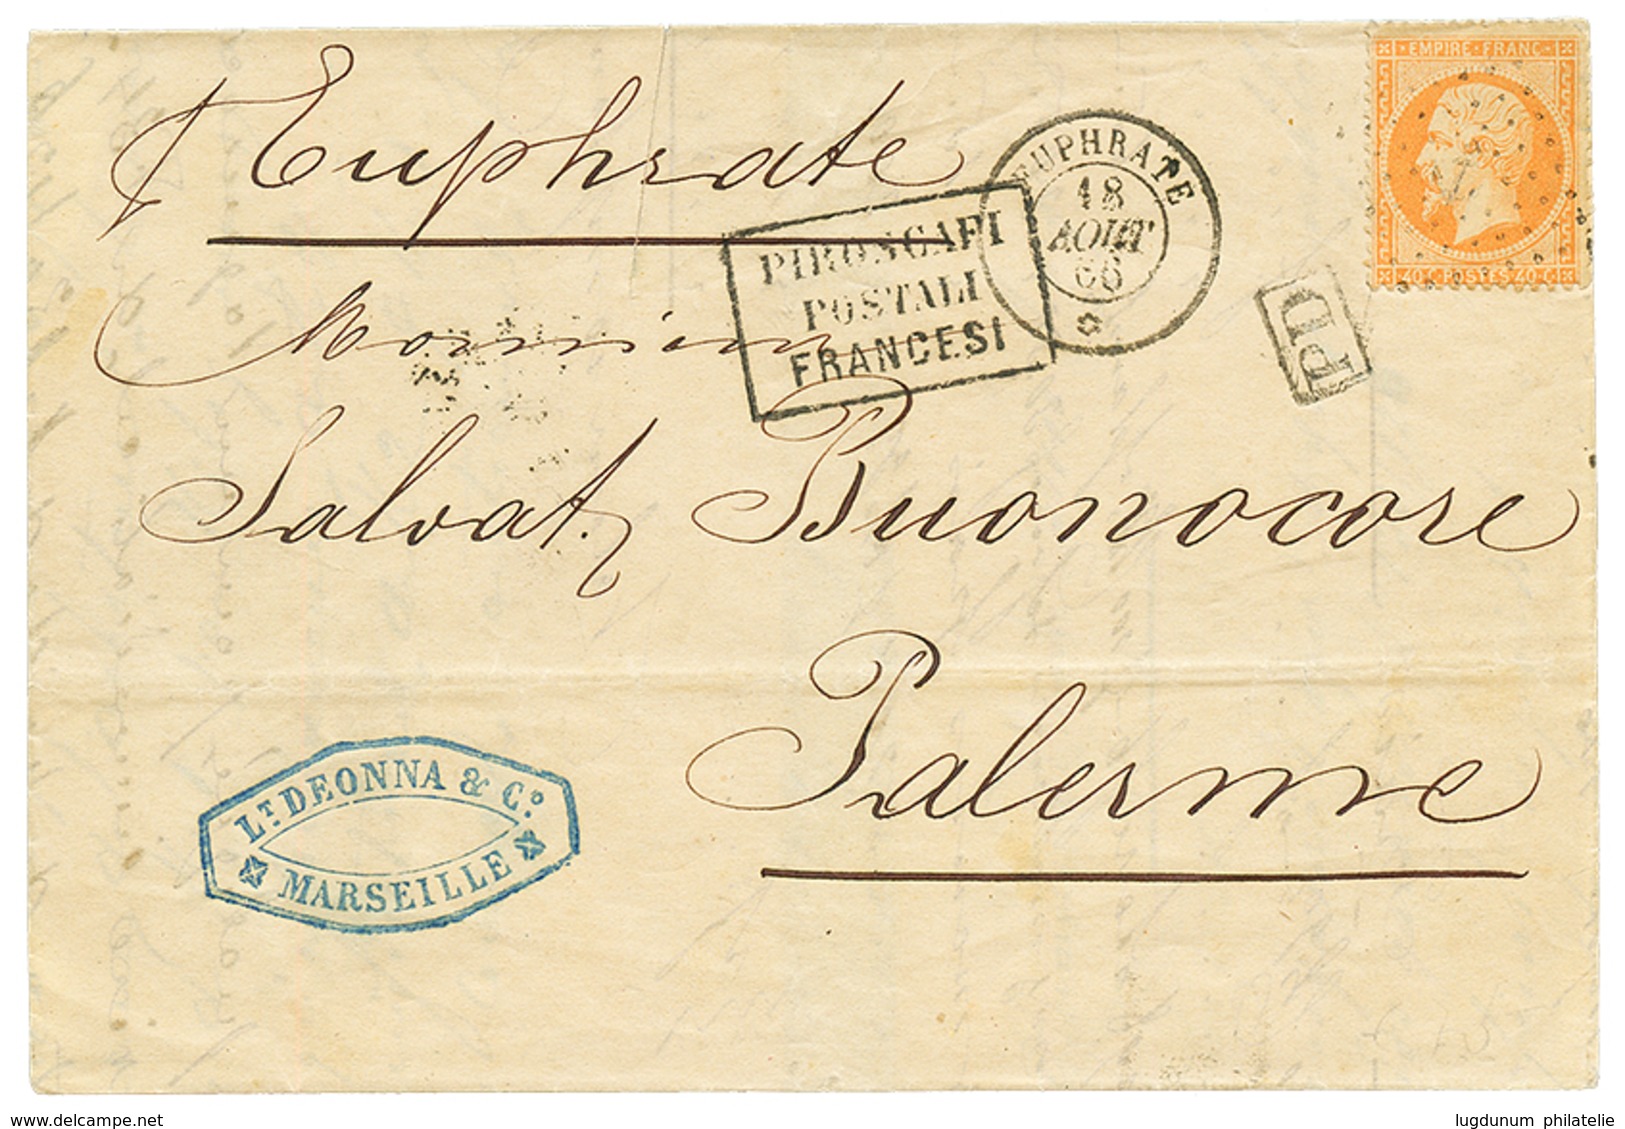 Euphrate
EUPHRATE
18
AOUT
66
EMPIRE FRANC
40 C POSTES 40 C
PIROSCAFI
POSTALI
FRANCESI
PD
Monsieur
Salvat. Buonocore
Palerme
LT. DEONNA & Co.
MARSEILLE
delcampe.net
lugdunum philatelie